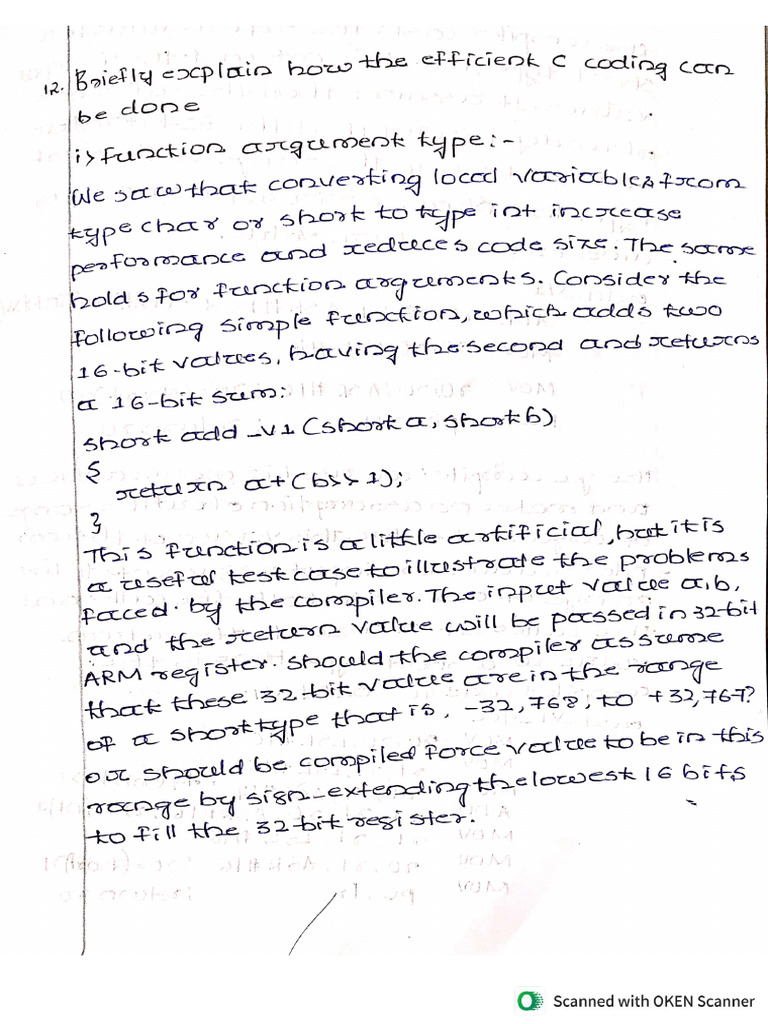 12. Briefly explain how the efficient C coding can
be done
i> function argument type:-
We saw that converting local variables from
type char or short to type int increase
performance and reduces code size. The same
holds for function arguments. Consider the
following simple function, which adds two
16-bit values, having the second and returns
a 16-bit sum:
short add_v1 (short a, short b)
{
return a+(b>>1);
}
This function is a little artificial, but it is
a useful test case to illustrate the problems
faced by the compiler. The input value a,b,
and the return value will be passed in 32-bit
ARM register. should the compiler assume
that these 32-bit value are in the range
of a short type that is, -32,768, to +32,767?
or should be compiled force value to be in this
range by sign-extending the lowest 16 bits
to fill the 32-bit register.
Scanned with OKEN Scanner